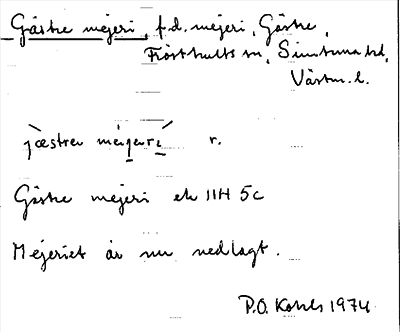 Gästre mejeri, f.d. mejeri, Gästre,
Frösthults sn, Simtuna hd,
Västm. l.
jæstrer méijerì r.
Gästre mejeri ek 11H 5c
Mejeriet är nu nedlagt.
P.O. Kohls 1974